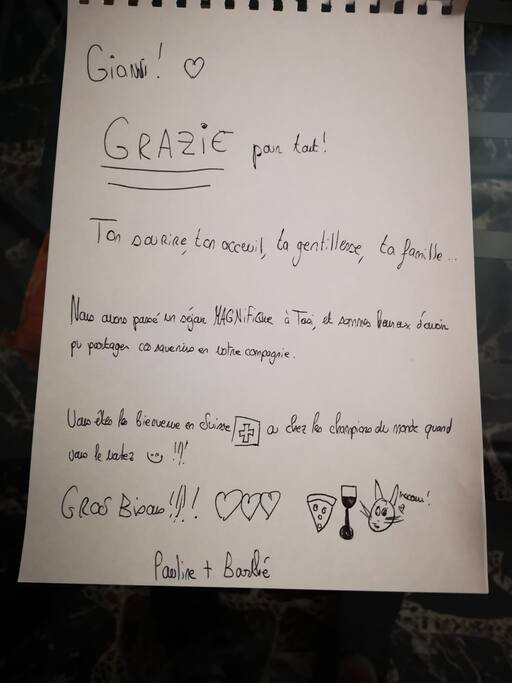 Gianni! ♡
GRAZIE pour tout!
Ton sourire, ton acceuil, ta gentillesse, ta famille...
Nous avons passé un séjour MAGNIFIQUE à Taxi, et sommes heureux d'avoir
pu partager ces souvenirs en votre compagnie.
Vous êtes les bienvenue en Suisse ou chez les champions du monde quand
vous le voulez !!!
GROS Bisous !!!! ♡♡♡ miaou!
Pauline +